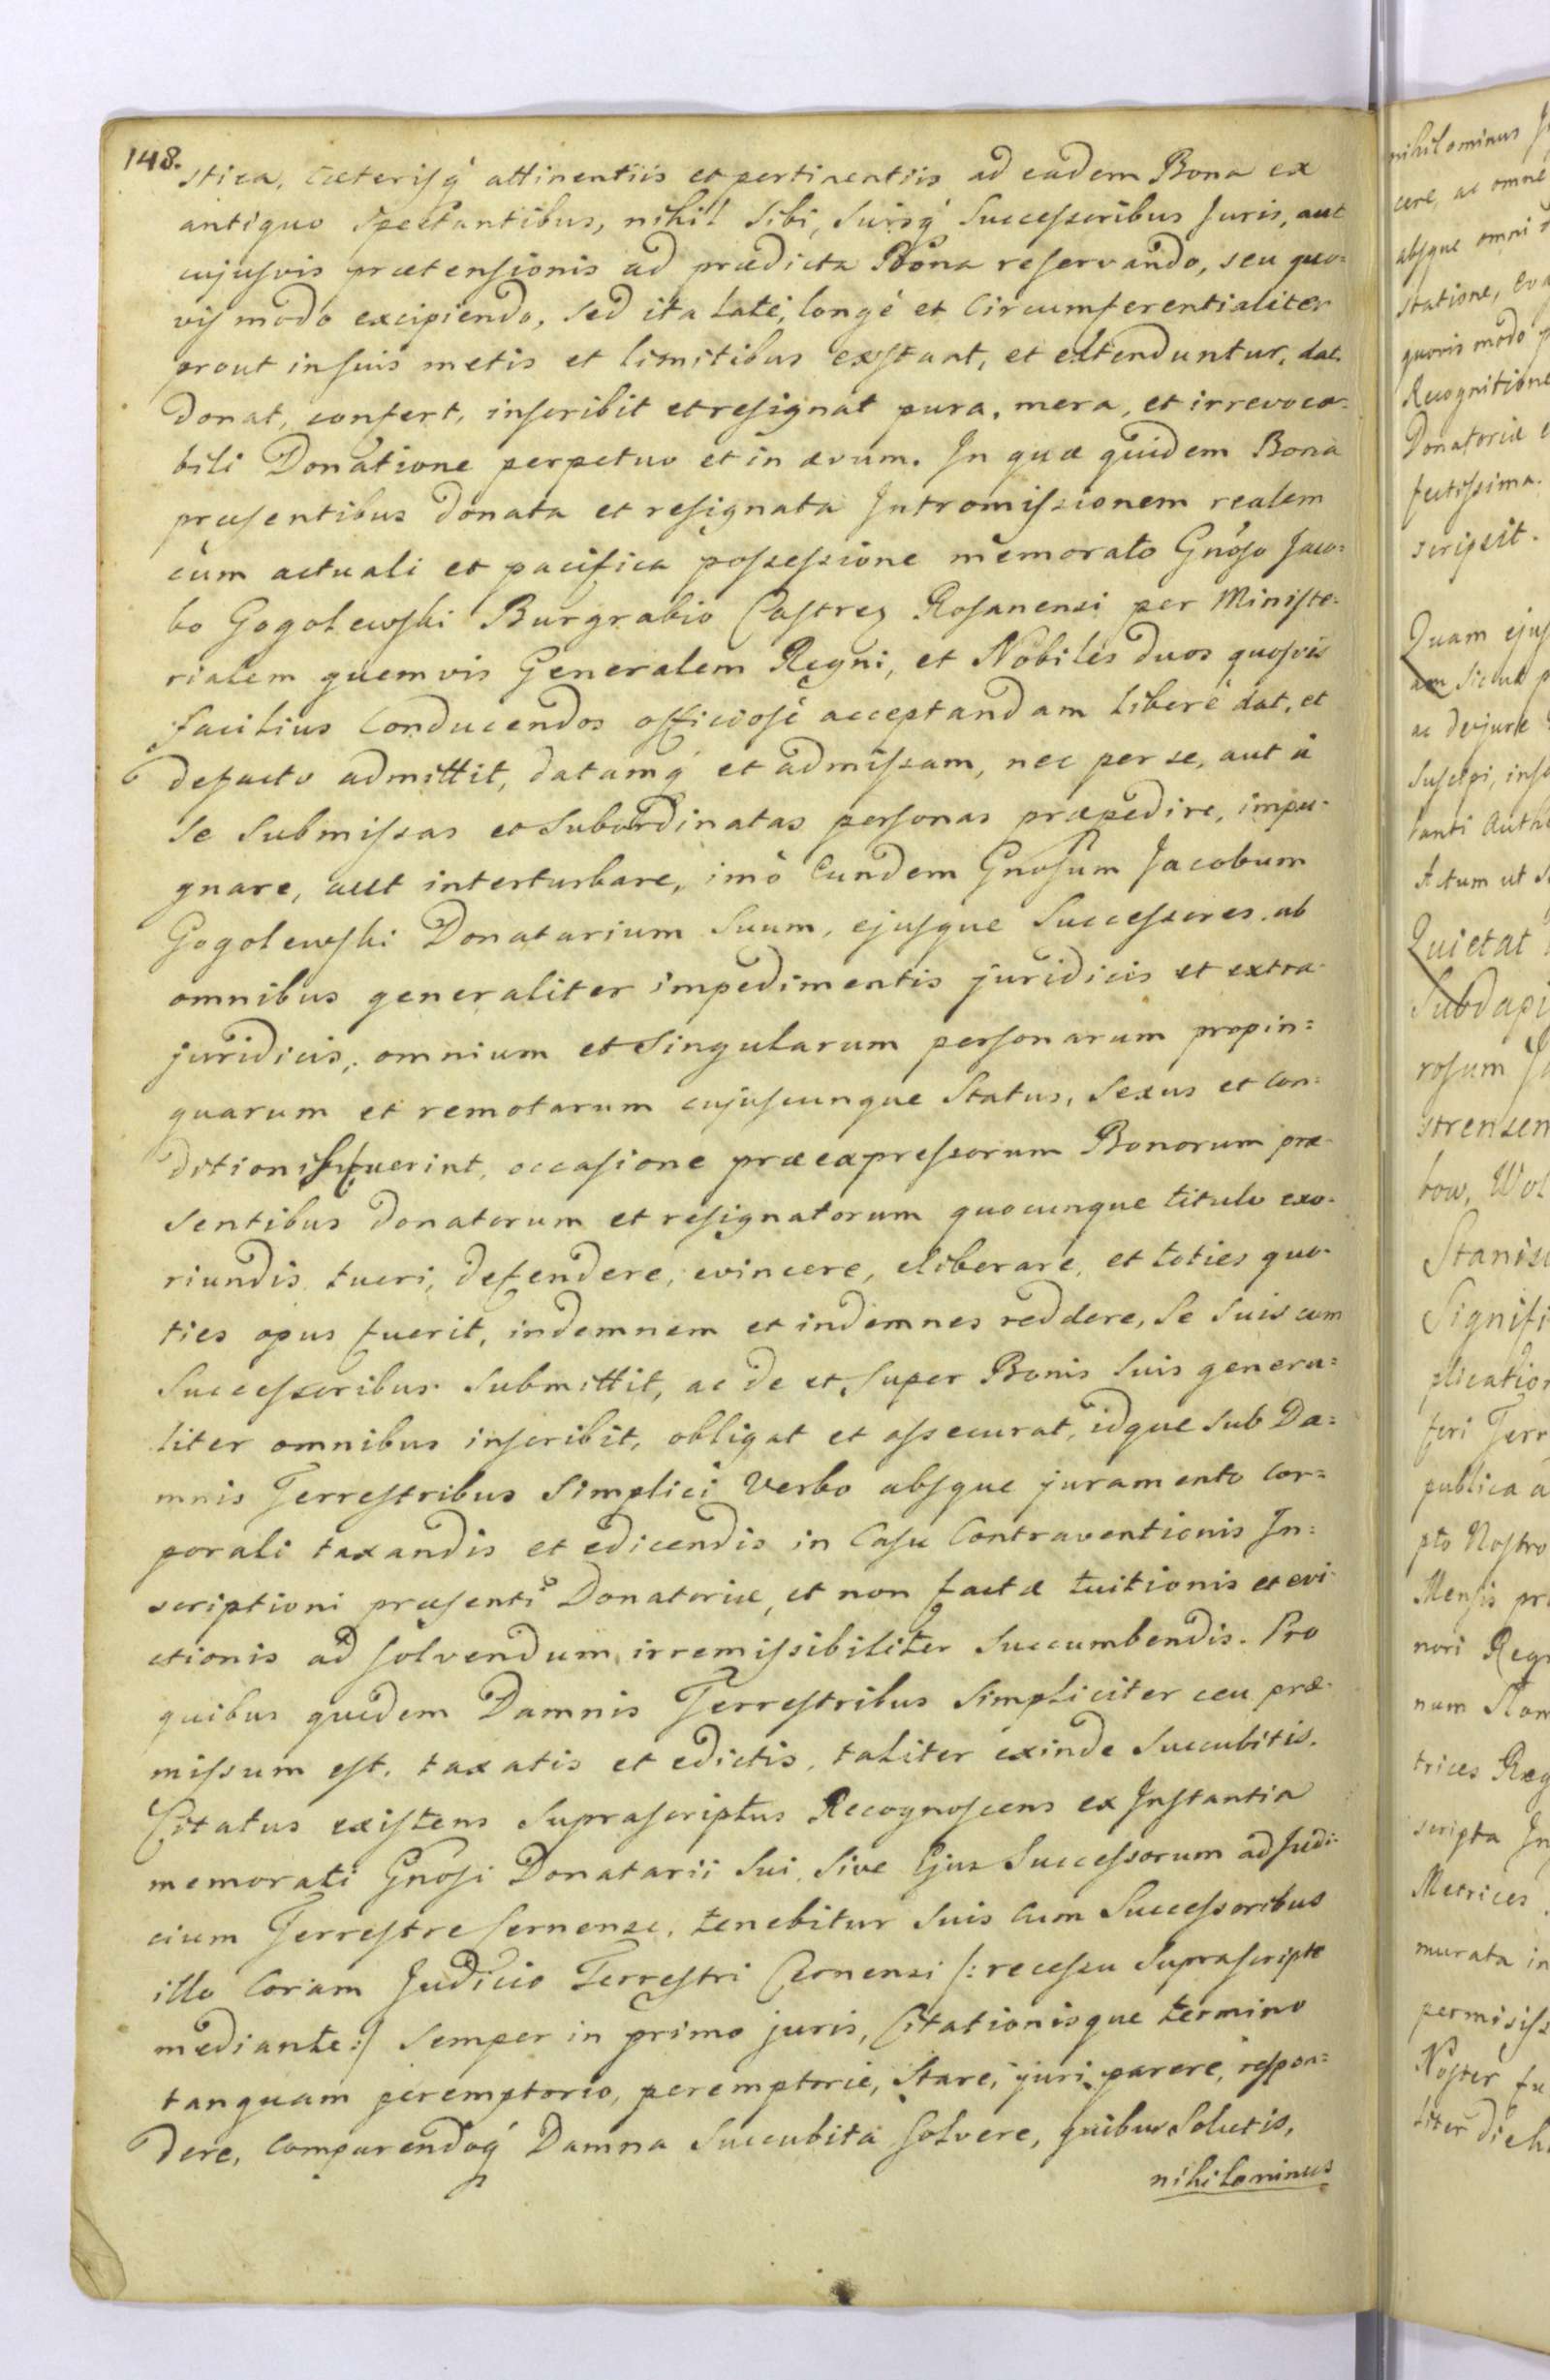 148.
stica, cæterisq́ attinentiis et pertinentiis ad eadem Bona ex
antiquo Spectantibus, nihil Sibi, Suisq́ Successoribus Juris, aut
cujusvis prætensionis ad prædicta Bona reservando, seu quo=
vis modo excipiendo, Sed ita latè, longè et Circumferentialiter
prout in suis metis et limitibus exstant, et extenduntur, dat.
Donat, confert, inscribit et resignat pura, mera, et irrevoca=
bili Donatione perpetuo et in ævum. In quæ quidem Bona
præsentibus donata et resignata Intromissionem realem
cum actuali et pacifica possessione memorato Gnoso Jaco=
bo Gogolewski Burgrabio Castren Rosanensi per Ministe=
rialem quemvis Generalem Regni, et Nobiles duos quosvis
facilius Conducendos officiosè acceptandam liberè dat, et
de facto admittit, datamq́ et admissam, nec per se, aut à
Se Submissas et Subordinatas personas præpedire, impu=
gnare, aut interturbare, imò Eundem Gnosum Jacobum
Gogolewski Donatarium Suum, ejusque Successores ab
omnibus generaliter impedimentis juridicis et extra
juridicis, omnium et Singularum personarum propin=
quarum et remotarum cujuscunque Status, Sexus et Con=
ditionis fuerint, occasione præexpressorum Bonorum præ
sentibus donatorum et resignatorum quocunque titulo exo=
riundis tueri, defendere, evincere, eliberare, et toties quo=
ties opus fuerit, indemnem et indemnes reddere, Se Suis cum
Successoribus Submittit, ac de et Super Bonis Suis genera=
liter omnibus inscribit, obligat et assecurat, idque Sub Da=
mnis Terrestribus Simplici Verbo absque juramento Cor=
porali taxandis et edicendis in Casu Contraventionis In=
scriptioni præsenti Donatoriæ, et non factæ tuitionis et evi
ctionis ad Solvendum irremissibiliter Succumbendis. Pro
quibus quidem Damnis Terrestribus Simpliciter ceu præ=
missum est, taxatis et edictis, taliter exinde Succubitis.
Citatus existens Suprascriptus Recognoscens ex Instantia
memorati Gnosi Donatarii Sui, Sive Ejus Successorum ad Judi=
cium Terrestre Cernense, tenebitur Suis cum Successoribus
illo Coram Judicio Terrestri Cernensi /: recessu Suprascripto
mediante :/ Semper in primo juris, Citationisque termino
tanquam peremptorio, peremptoriè, Stare, juri parere, respon=
dere, comparendoq́ Damna Succubita Solvere, quibus Solutis,
nihilominus
nihilominus
cere, ac omne
absque omni
statione, eva
quovis modo
Recognitione
Donatoriæ
fectissima.
scripsit.
Quam ejus
am Sicut
ac de jure
Suscepi, insc
tanti Auth
Actum ut
Quietat
Subdapi
rosum
strensen
bow, Wol
Stanisl
Signifi
plication
feri Terr
publica a
pto Nostro
Mensis pr
nori Reg
num
trices Reg
scripta In
Metrices
murata in
permisiss
Noster fu
liter